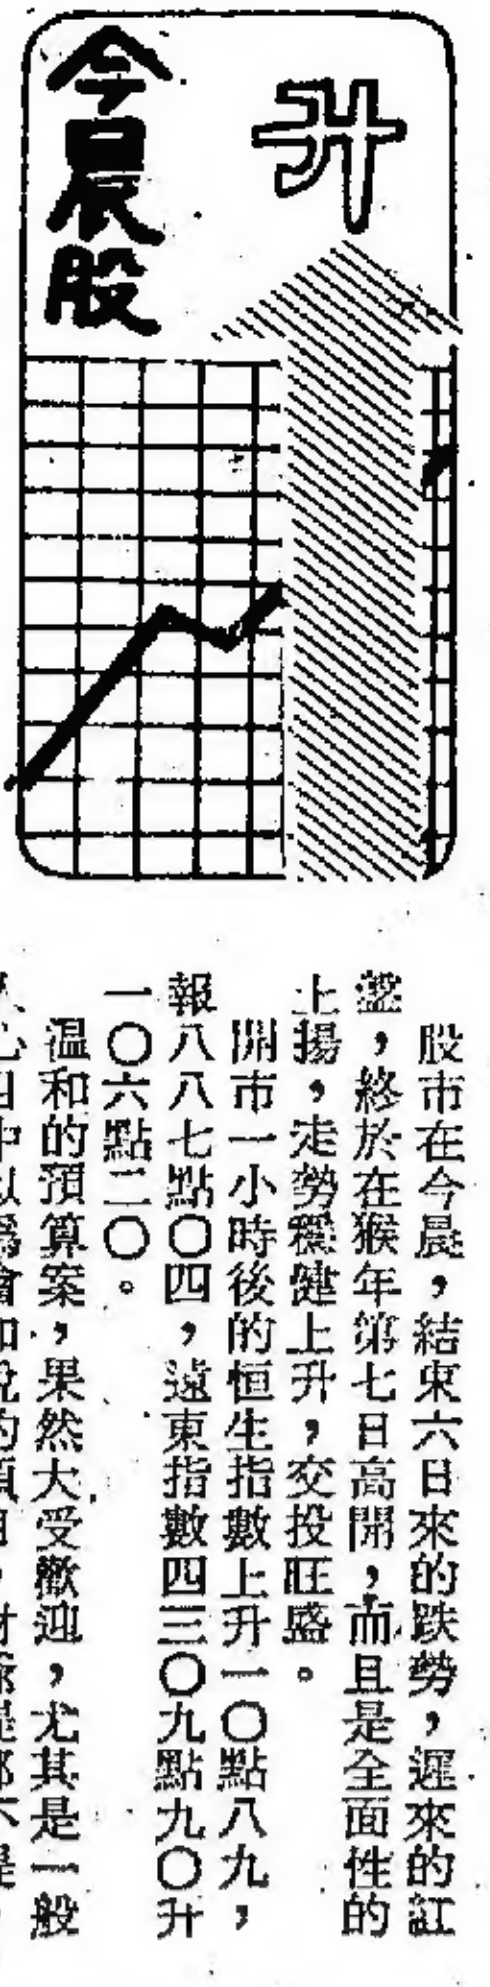 今晨股
升
股市在今晨，結束六日來的跌勢，遲來的紅
盤，終於在猴年第七日高開，而且是全面性的
上揚，走勢穩健上升，交投旺盛。
開市一小時後的恒生指數上升一〇點八九，
報八八七點〇四，遠東指數四三〇九點九〇升
一〇六點二〇。
溫和的預算案，果然大受歡迎，尤其是一般